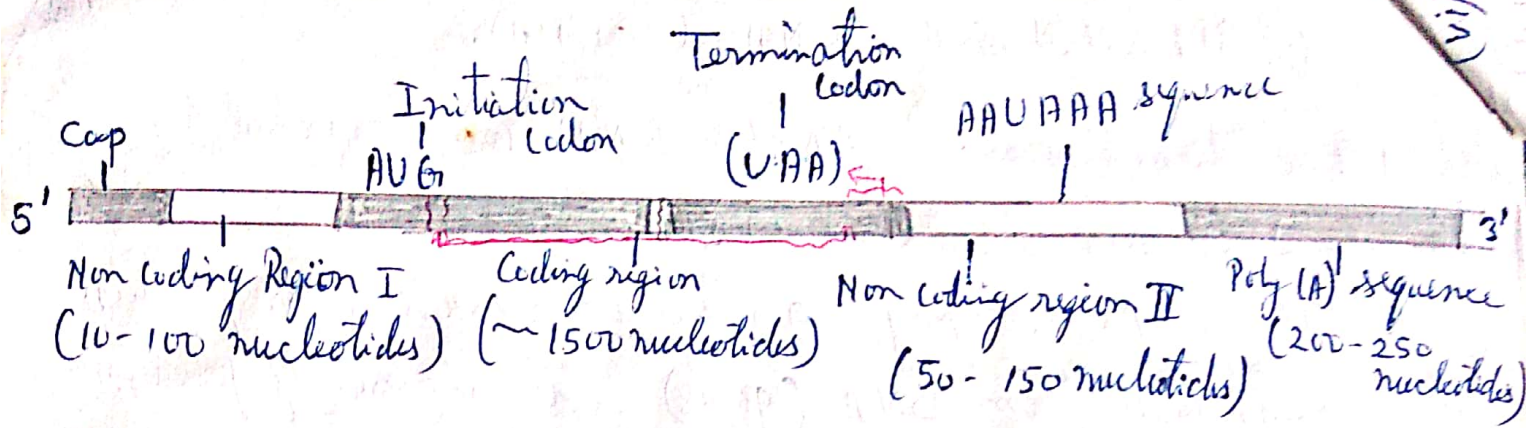 (vi)
Termination
codon
Initiation
codon
AAUAAA sequence
Cap
AUG
(UAA)
5'
3'
Non coding Region I
(10-100 nucleotides)
Coding region
(~1500 nucleotides)
Non coding region II
(50-150 nucleotides)
Poly (A) sequence
(200-250
nucleotides)